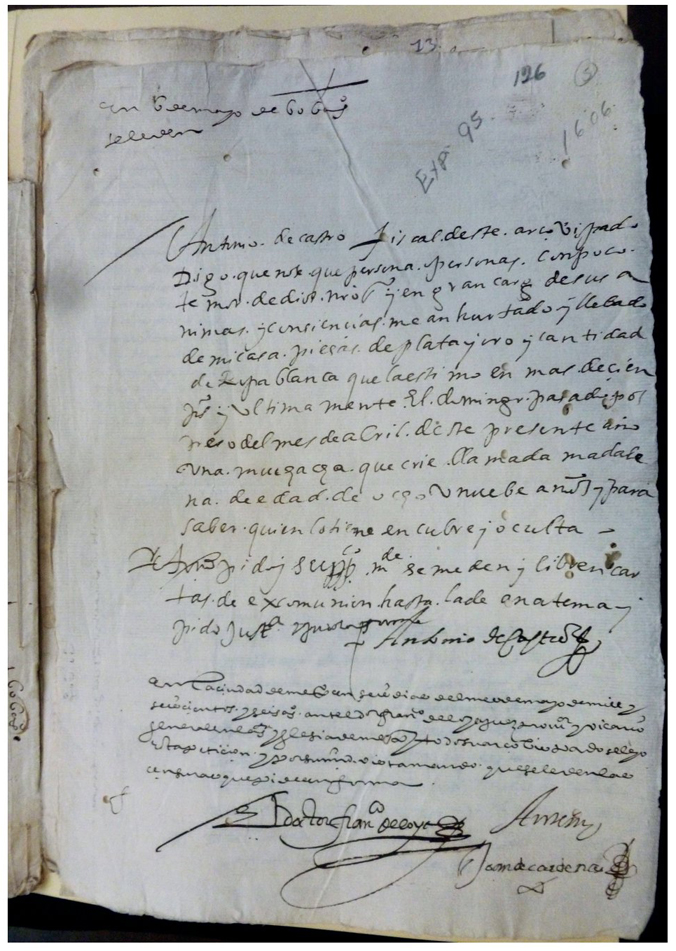 13
126
3
Exp. 95
1606
en 6 de mayo de 606 años
se leyeron
Antonio. de castro fiscal deste. arçobispado
Digo. que no se que persona. opersonas. conpoco.
temor. de dios. nro sr y en gran cargo de sus a
nimas. y consiencias. me an hurtado y llebado
de mi casa. pieças. de plata y oro y cantidad
de Ropa blanca que la estimo en mas de çien
ps y ultima mente. El domingo. pasado pos
trero del mes de abril. deste presente año
una. muchacha. que crie. llamada madale
na. de edad. de ocho o nuebe años y para
saber. quien lo tiene encubre y oculta
A vmd pido y suppco mde se me den y libren car
tas. de excomunion hasta. la de anatema y
pido justa
Antonio de Castro
en la ciudad de mexco en seis dias del mes de mayo de mill y
seiscientos y seis años. ante el dor franco de loya provisor y vicario
general en las yglesia de mexco y todo su arçobispado se leyo
esta peticion. y por su md vista mando. que se le den las
censuras que pide en forma
El doctor franco de loya
Ante mi
Juan de cardenas